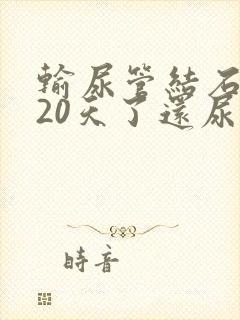 輸尿管結石
20天了還尿
時音